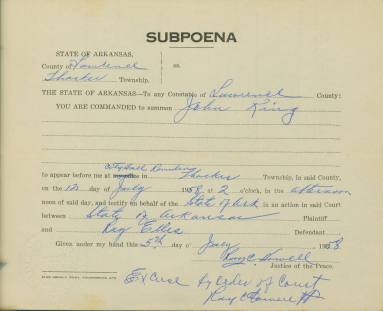 SUBPOENA
STATE OF ARKANSAS,
County of Lawrence ss.
Thacker Township.
THE STATE OF ARKANSAS—To any Constable of Lawrence County:
YOU ARE COMMANDED to summon John King
City Hall
to appear before me at my office in Thacker Township, in said County,
on the 12 day of July 1958 at 2 o'clock, in the afternoon
noon of said day, and testify on behalf of the State of Ark in an action in said Court
between State of Arkansas Plaintiff
and Ray Ellis Defendant
Given under my hand this 5th day of July 1958
Ray C. Howell
Justice of the Peace.
Excuse by order of Court
Ray C